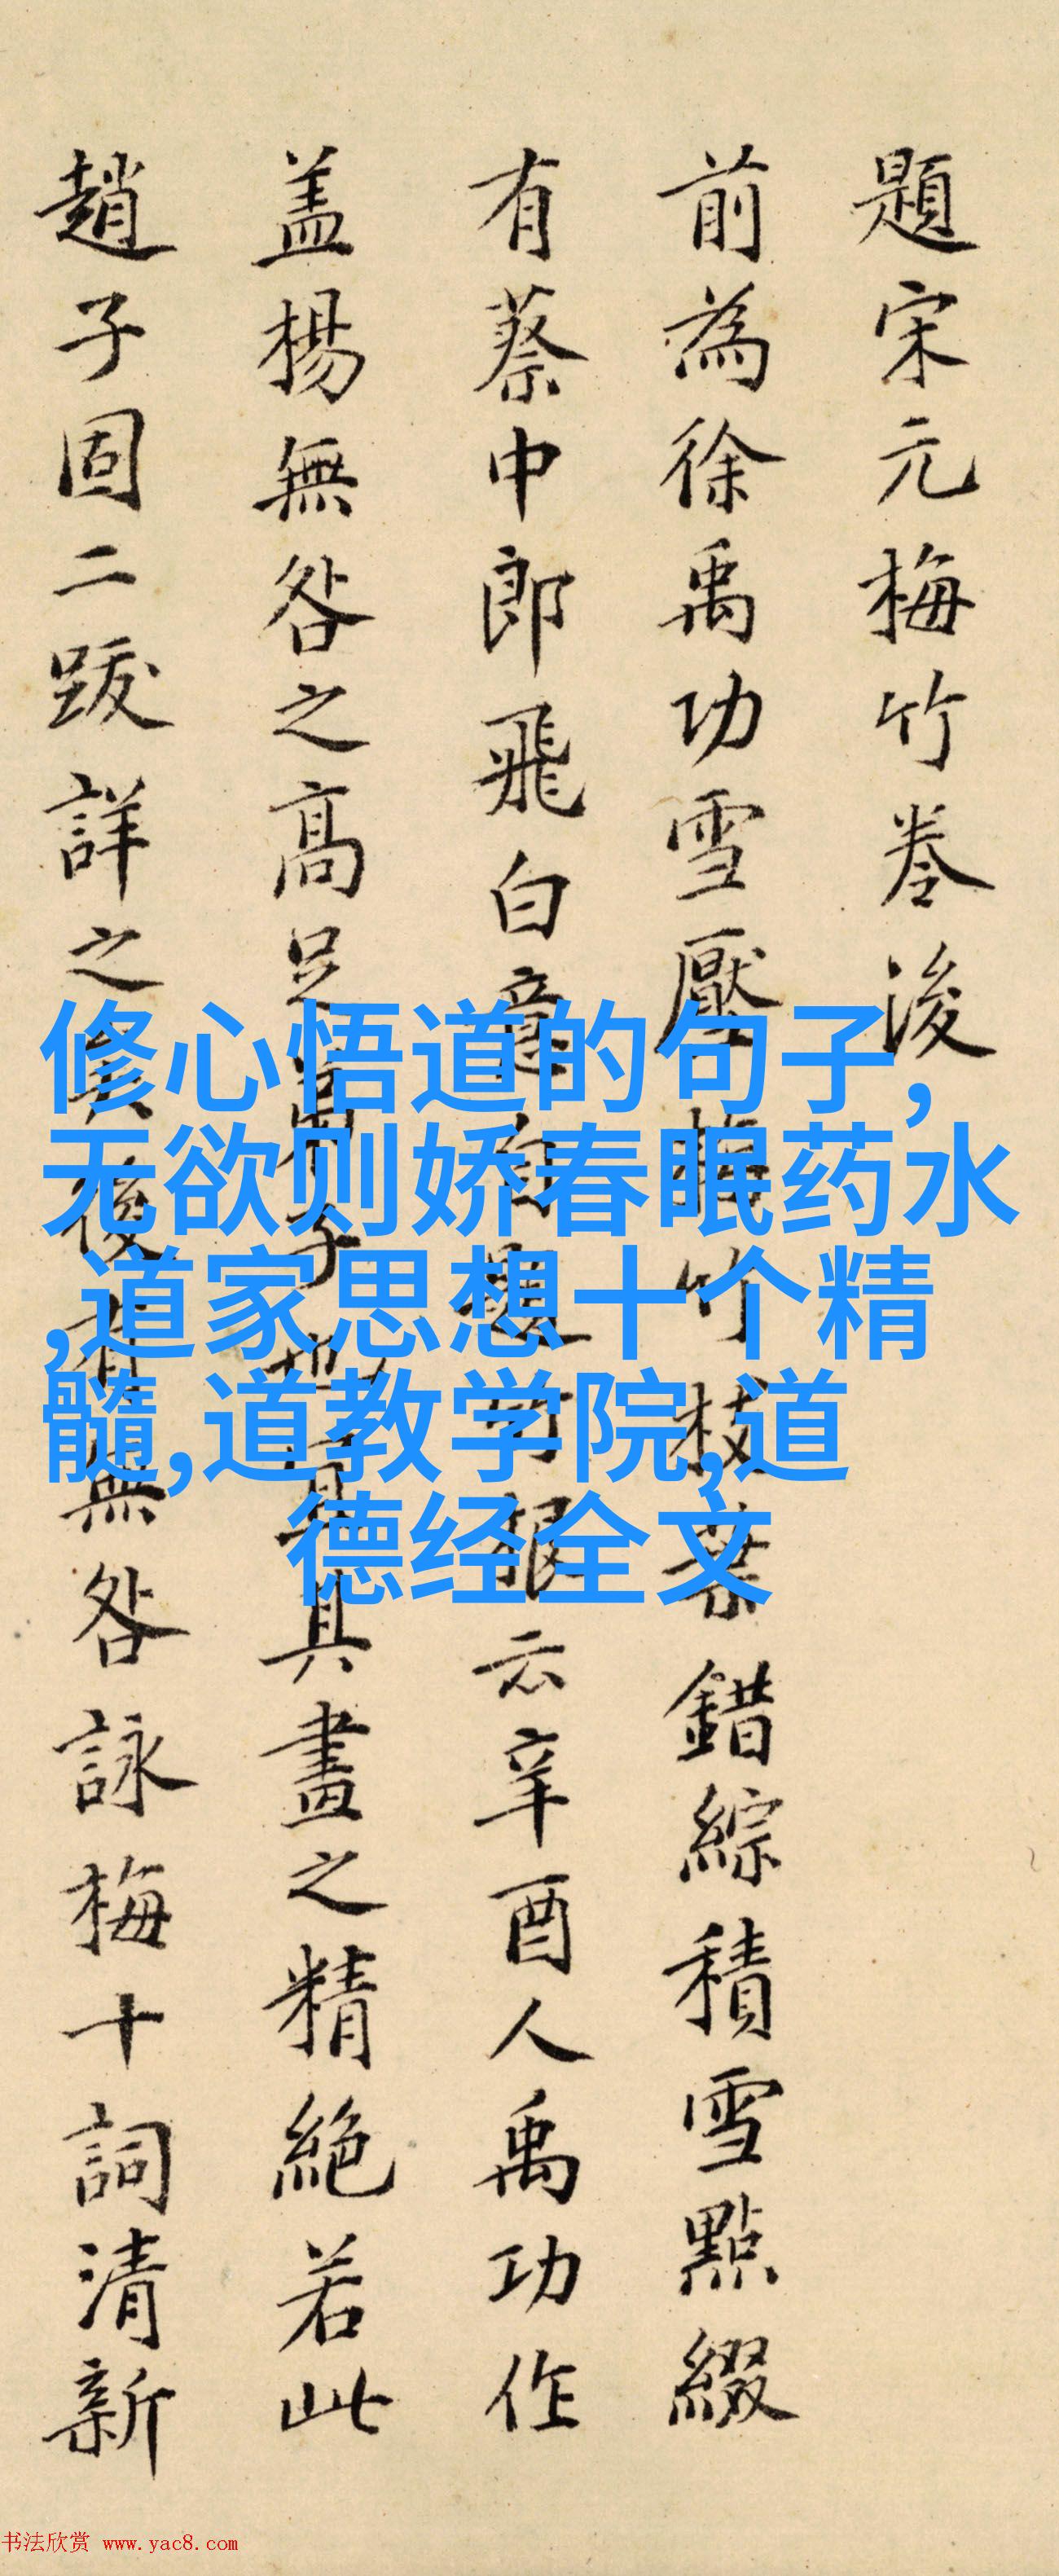 題宋元梅竹卷後
前為徐禹功雪壓梅竹枝葉錯綜積雪點綴
有蔡中郎飛白意自題竹根云辛酉人禹功作
盖楊無咎之高足
具畫之精絕若此
趙子固二跋詳之矣後有無咎詠梅十詞清新
修心悟道的句子,
无欲则娇春眠药水
,道家思想十个精
髓,道教学院,道
德经全文
书法欣赏 www.yac8.com